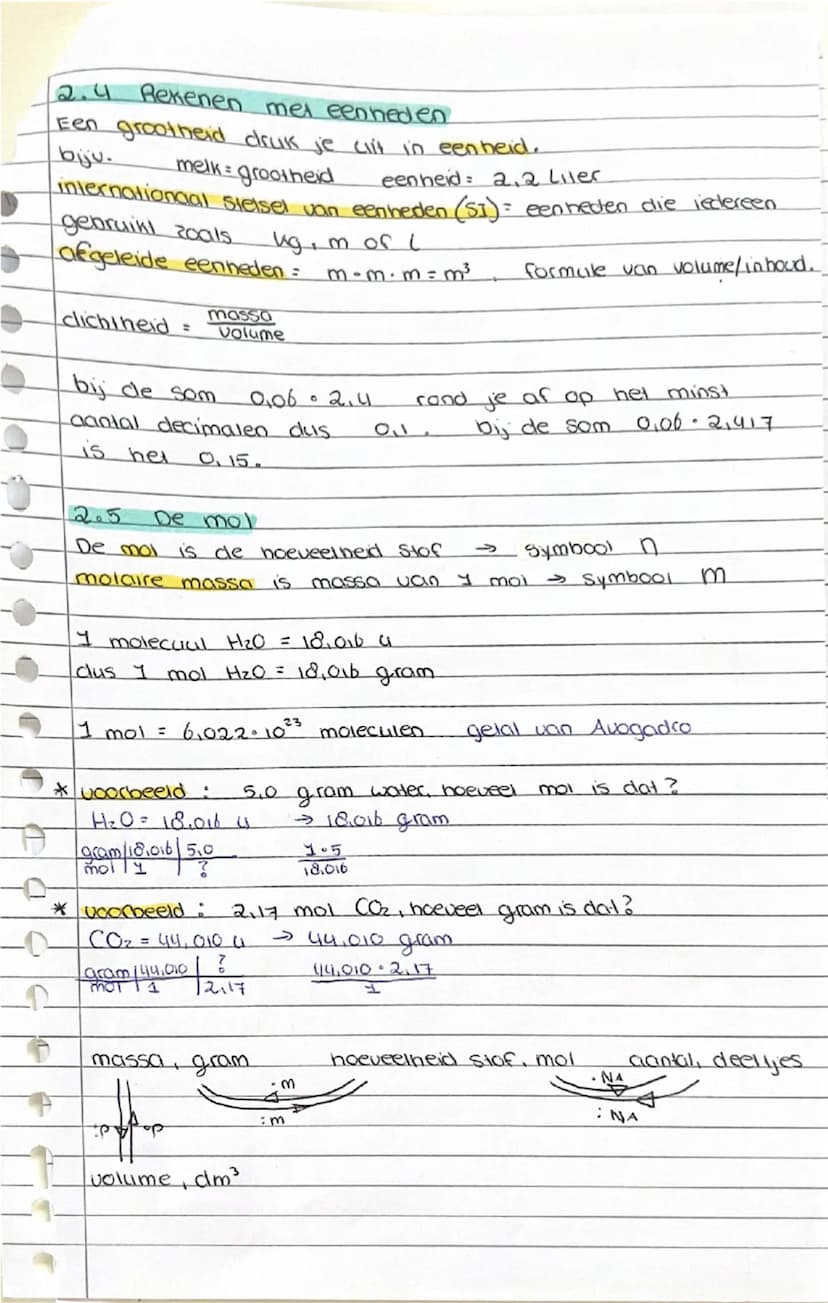 2.4 Rekenen met eenheden
Een grootheid druk je uit in eenheid.
bijv. melk = grootheid eenheid = 2,2 Liter
internationaal stelsel van eenheden (SI) = eenheden die iedereen
gebruikt zoals kg, m of l
afgeleide eenheden = m · m · m = m³, formule van volume/inhoud.
dichtheid = massa
volume
bij de som 0,06 · 2,4 rond je af op het minst
aantal decimalen dus 0,1. bij de som 0,06 · 2,417
is het 0,15.
2.5 De mol
De mol is de hoeveelheid stof → symbool n
molaire massa is massa van 1 mol → symbool m
1 molecuul H₂O = 18,016 u
dus 1 mol H₂O = 18,016 gram
1 mol = 6,022 · 10²³ moleculen getal van Avogadro
* voorbeeld : 5,0 gram water, hoeveel mol is dat?
H₂O = 18,016 u → 18,016 gram
gram | 18,016 | 5,0 1 · 5
mol | 1 | ? 18,016
* voorbeeld : 2,17 mol CO₂, hoeveel gram is dat?
CO₂ = 44,010 u → 44,010 gram
gram | 44,010 | ? 44,010 · 2,17
mol | 1 | 2,17 1
massa, gram hoeveelheid stof, mol aantal, deeltjes
· m · NA
: m : NA
:p ·p
volume, dm³